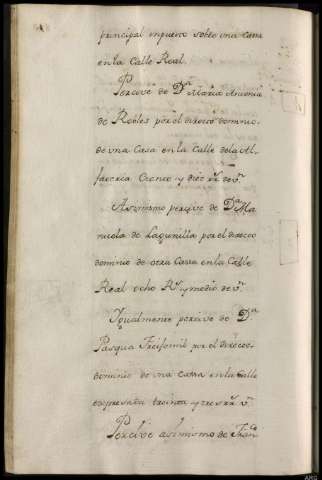 principal impuesto sobre una Casa
en la Calle Real.
Percive de D.ª Maria Antonia
de Robles por el directo dominio
de una Casa en la Calle de la Al-
fareria Ciento y diez rr.s de v.n
Asimismo percive de D.ª Ma
nuela de Lagunilla por el directo
dominio de otra Cassa en la Calle
Real ocho R.s y medio de v.n
Igualmente percive de D.ª
Pasqua por el directo
dominio de una Cassa en la Calle
expresada treinta y tres rr.s v.n
Percive asimismo de Fran.co